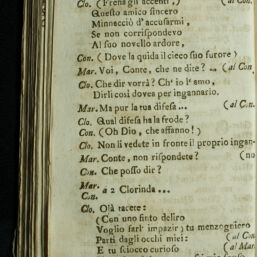 Clo. (Frena gli accenti,) (al Con.
Questo amico sincero
Minnacciò d'accusarmi,
Se non corrispondevo
Al suo novello ardore,
Con. (Dove la guida il cieco suo furore)
Mar. Voi, Conte, che ne dite? .. (al Con.
Clo. Che dir vorrà? Ch'io l'amo,
Dirli così dovea per ingannario.
Mar. Ma pur la tua difesa... (al C.
Clo. Qual difesa ha la frode?
Con. (Oh Dio, che affanno!)
Clo. Non li vedete in fronte il proprio ingan-
Mar. Conte, non rispondete? (no
Con. Che posso dir?
Mar.
Con. a 2 Clorinda...
Clo. Olà tacete:
(Con uno finto deliro
Voglio farl' impazir) tu menzogniero
Parti dagli occhi miei: (al Con.
E tu sciocco curioso (al Mar.